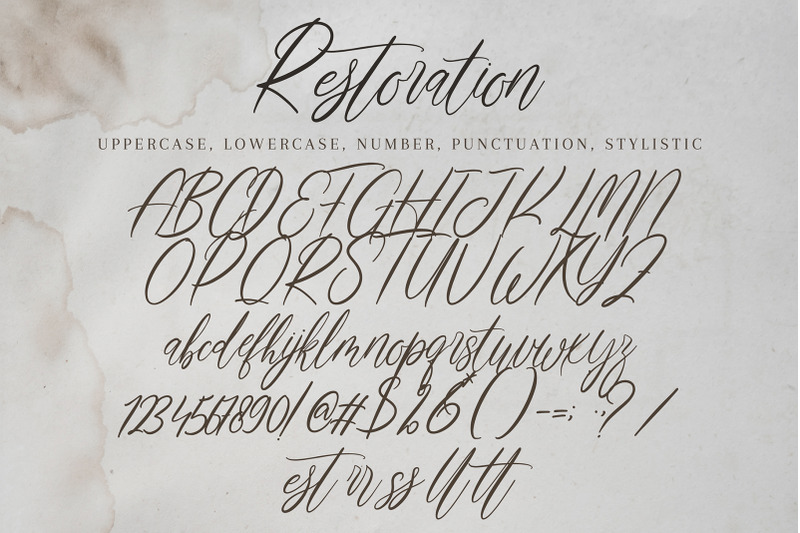 Restoration
UPPERCASE, LOWERCASE, NUMBER, PUNCTUATION, STYLISTIC
ABCDEFGHIJKLMN
OPQRSTUVWXYZ
abcdefhijklmnopqrstuvwxyz
1234567890! @#$ & * () -=; .,? /
est rr ss ll tt